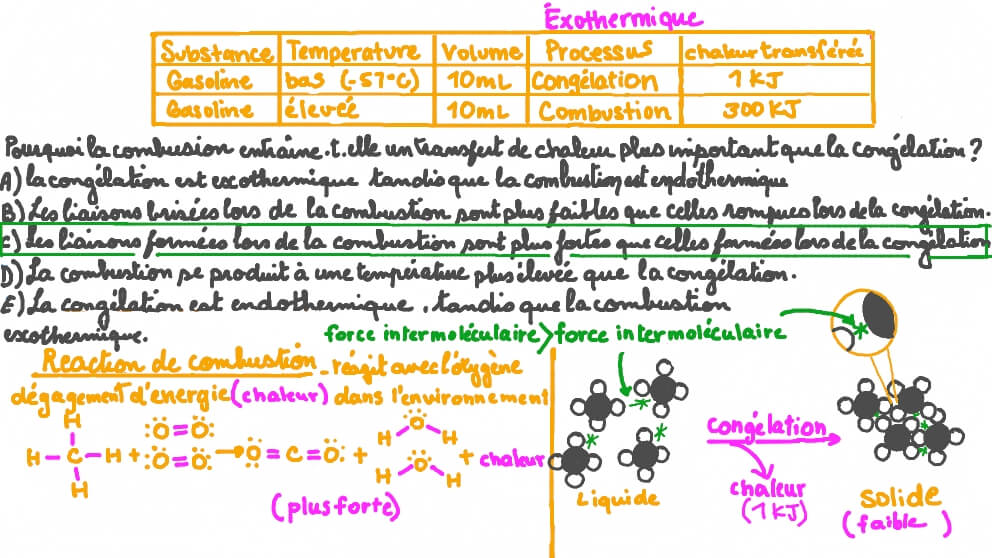 Exothermique
Substance Temperature Volume Processus chaleur transférée
Gasoline bas (-57°C) 10mL Congélation 1 KJ
Gasoline élevée 10mL Combustion 300 KJ
Pourquoi la combusion entraîne.t.elle un transfert de chaleur plus important que la congélation ?
A) la congélation est exothermique tandis que la combustion est endothermique
B) Les liaisons brisées lors de la combustion sont plus faibles que celles rompues lors de la congélation.
C) Les liaisons formées lors de la combustion sont plus fortes que celles formées lors de la congélation
D) La combustion se produit à une température plus élevée que la congélation.
E) La congélation est endothermique, tandis que la combustion
exothermique.
force intermoléculaire > force intermoléculaire
Reaction de combustion - réagit avec l'oxygène
dégagement d'energie (chaleur) dans l'environnement
H
H - C - H + O = O O = O → O = C = O + H O H H O H + chaleur
H
(plus forte)
Liquide
Congélation
chaleur
(1 KJ)
solide
(faible)